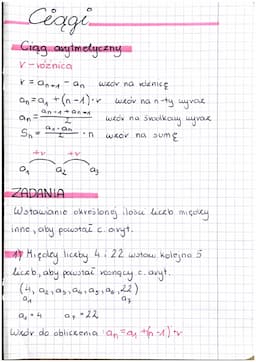 Ciągi
Ciąg arytmetyczny
r - różnica
r = aₙ₊₁ - aₙ wzór na różnicę
aₙ = a₁ + (n-1)·r wzór na n-ty wyraz
aₙ = (aₙ₋₁ + aₙ₊₁)/2 wzór na środkowy wyraz
Sₙ = (a₁ + aₙ)/2 · n wzór na sumę
+r +r
a₁ a₂ a₃
ZADANIA
Wstawianie określonej ilości liczb między
inne, aby powstał c. aryt.
1) Między liczby 4 i 22 wstaw kolejno 5
liczb, aby powstał rosnący c. aryt.
(4, a₂, a₃, a₄, a₅, a₆, 22)
a₁ a₇
a₁ = 4 a₇ = 22
Wzór do obliczenia: aₙ = a₁ + (n-1)·r